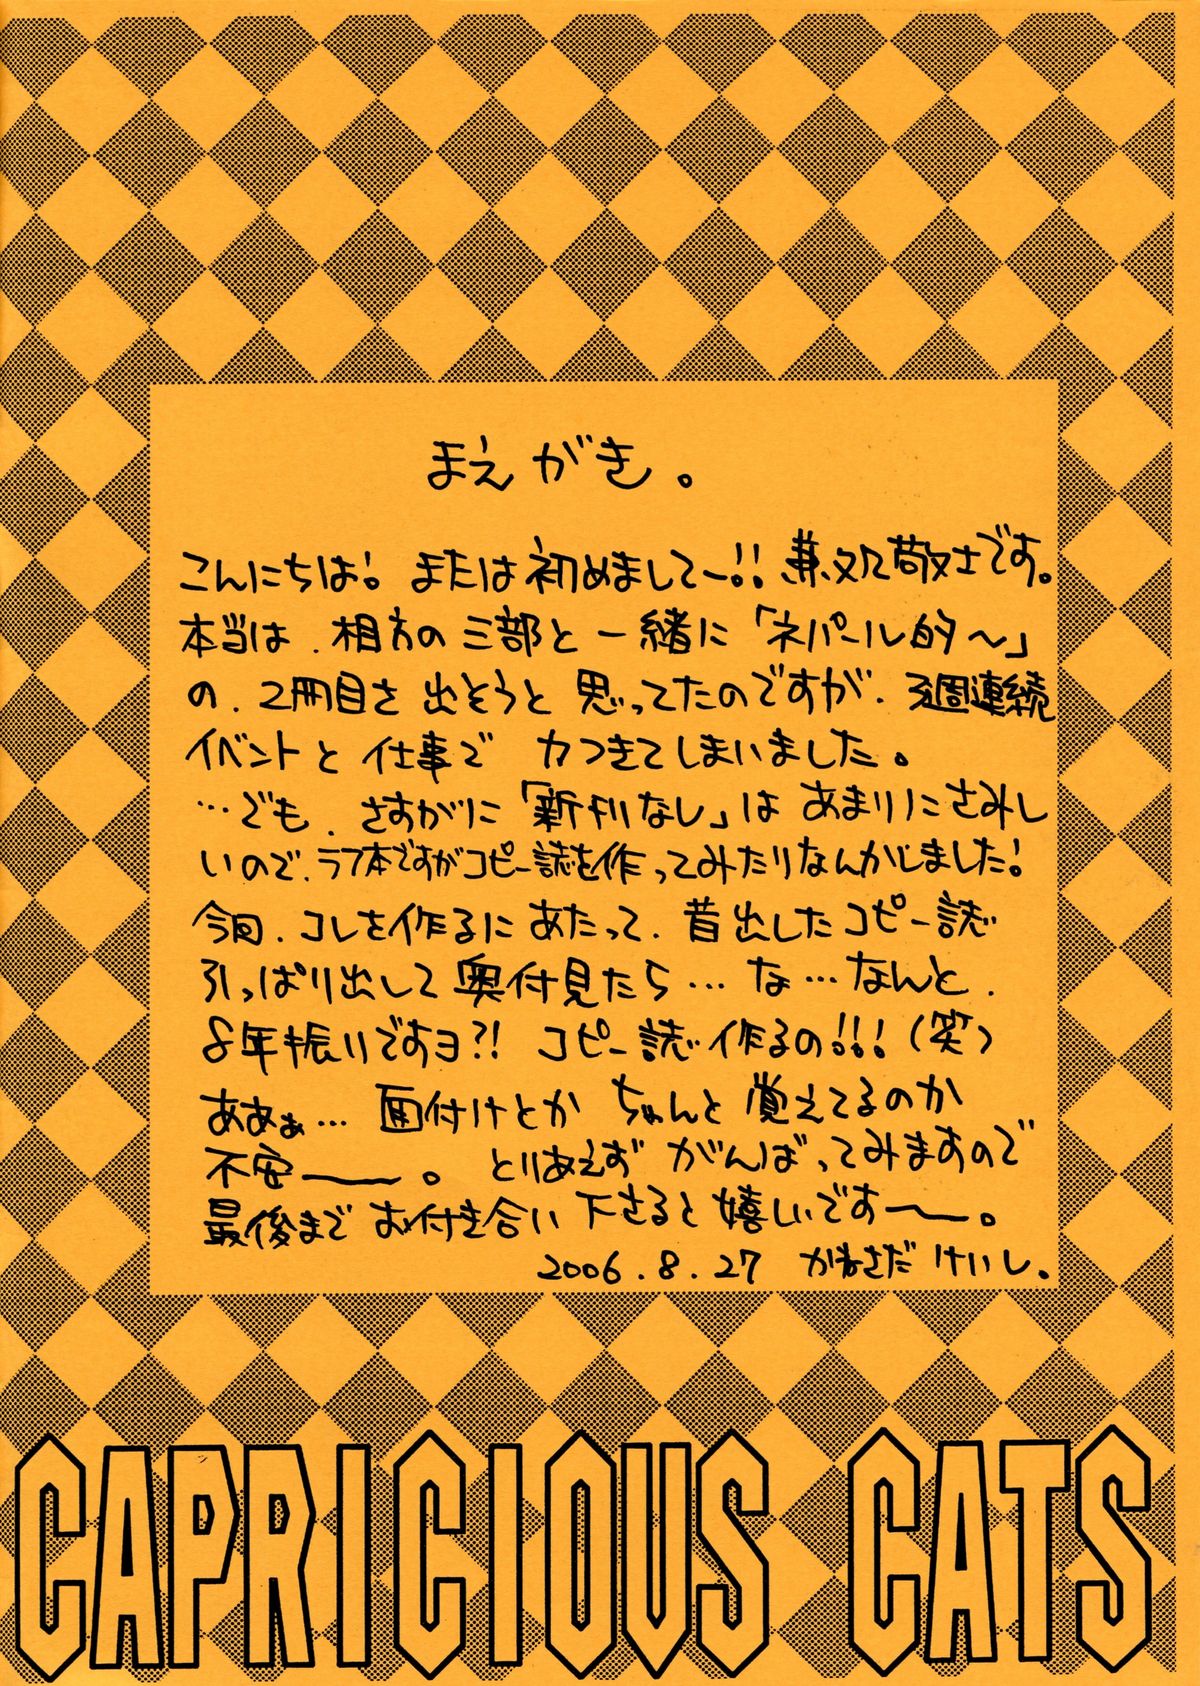 まえがき。
こんにちは!また​は初めましてー!!兼処敬士です。
本当は、相方の三部と一緒に「ネパール的〜」
の、2冊目を出そうと思ってたのですが、3週連続
イベントと仕事で力つきてしまいました。
…でも、さすがに「新刊なし」はあまりにさみし
いので、ラフ本ですがコピー誌を作ってみたりなんかしました!
今回、コレを作るにあたって、昔出したコピー誌
引っぱり出して奥付見たら…な…なんと、
8年振りですヨ?!コピー誌作るの!!!(笑)
ああぁ…面付けとかちゃんと覚えてるのか
不安――。とりあえずがんばってみますので
最後までお付き合い下さると嬉しいです〜。
2006.8.27 かねさだけいし。
CAPRICIOUS CATS